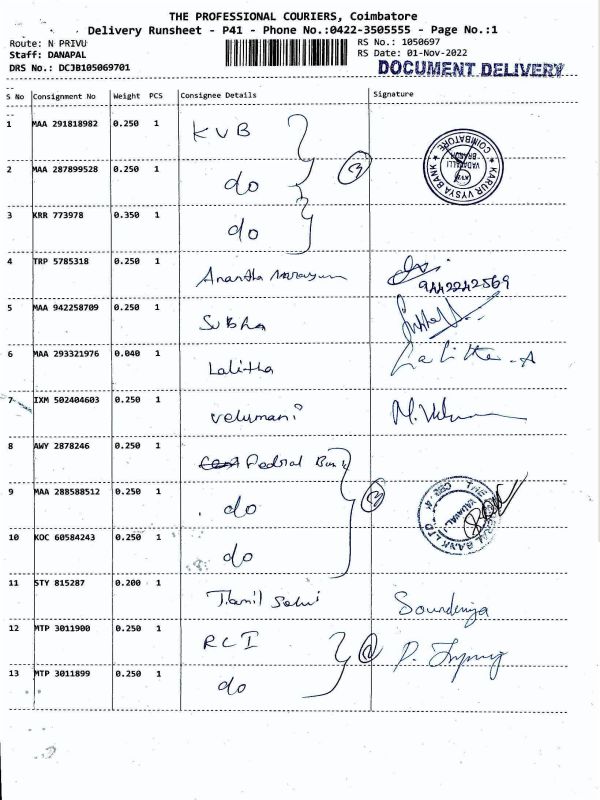 THE PROFESSIONAL COURIERS, Coimbatore
Delivery Runsheet - P41 - Phone No.:0422-3505555 - Page No.:1
Route: N PRIVU
RS No.: 1050697
Staff: DANAPAL
RS Date: 01-Nov-2022
DRS No.: DCJB105069701
DOCUMENT DELIVERY
S No Consignment No Weight PCS Consignee Details Signature
1 MAA 291818982 0.250 1 KVB
2 MAA 287899528 0.250 1 do 3
KARUR VYSYA BANK COIMBATORE
VADAVALLI BRANCH
3 KRR 773978 0.350 1 do
4 TRP 5785318 0.250 1 Anantha Narayan
9442242569
5 MAA 942258709 0.250 1 Subha
6 MAA 293321976 0.040 1 Lalitha Lalitha. A
7 IXM 502404603 0.250 1 Velumani
8 AWY 2878246 0.250 1 Fedral Bank
9 MAA 288588512 0.250 1 do 3
10 KOC 60584243 0.250 1 do
11 STY 815287 0.200 1 Tamil Selvi
12 MTP 3011900 0.250 1 RCI 2
13 MTP 3011899 0.250 1 do